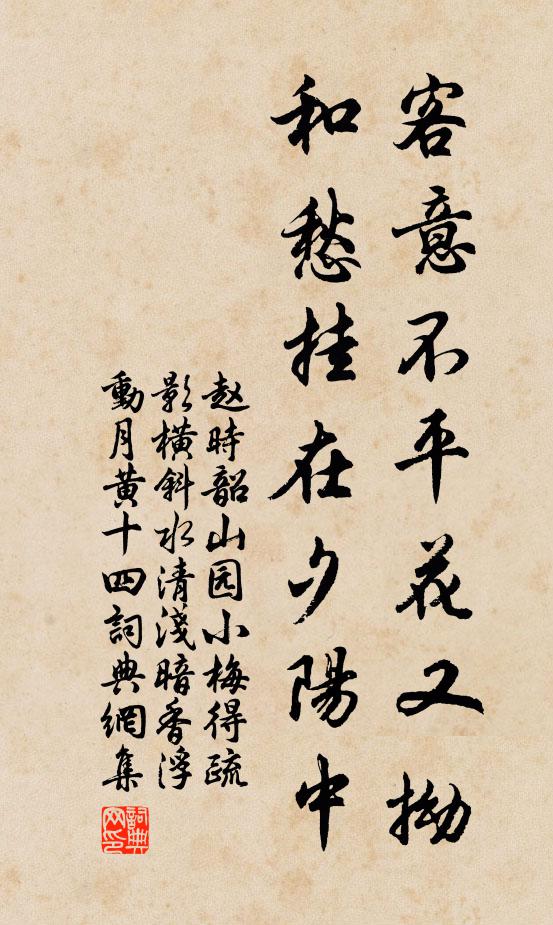 客意不平花又拗
和愁挂在夕陽中
赵時韶山园小梅得疏
影横斜水清淺暗香浮
動月黄十四詞典網集
詞典
网印